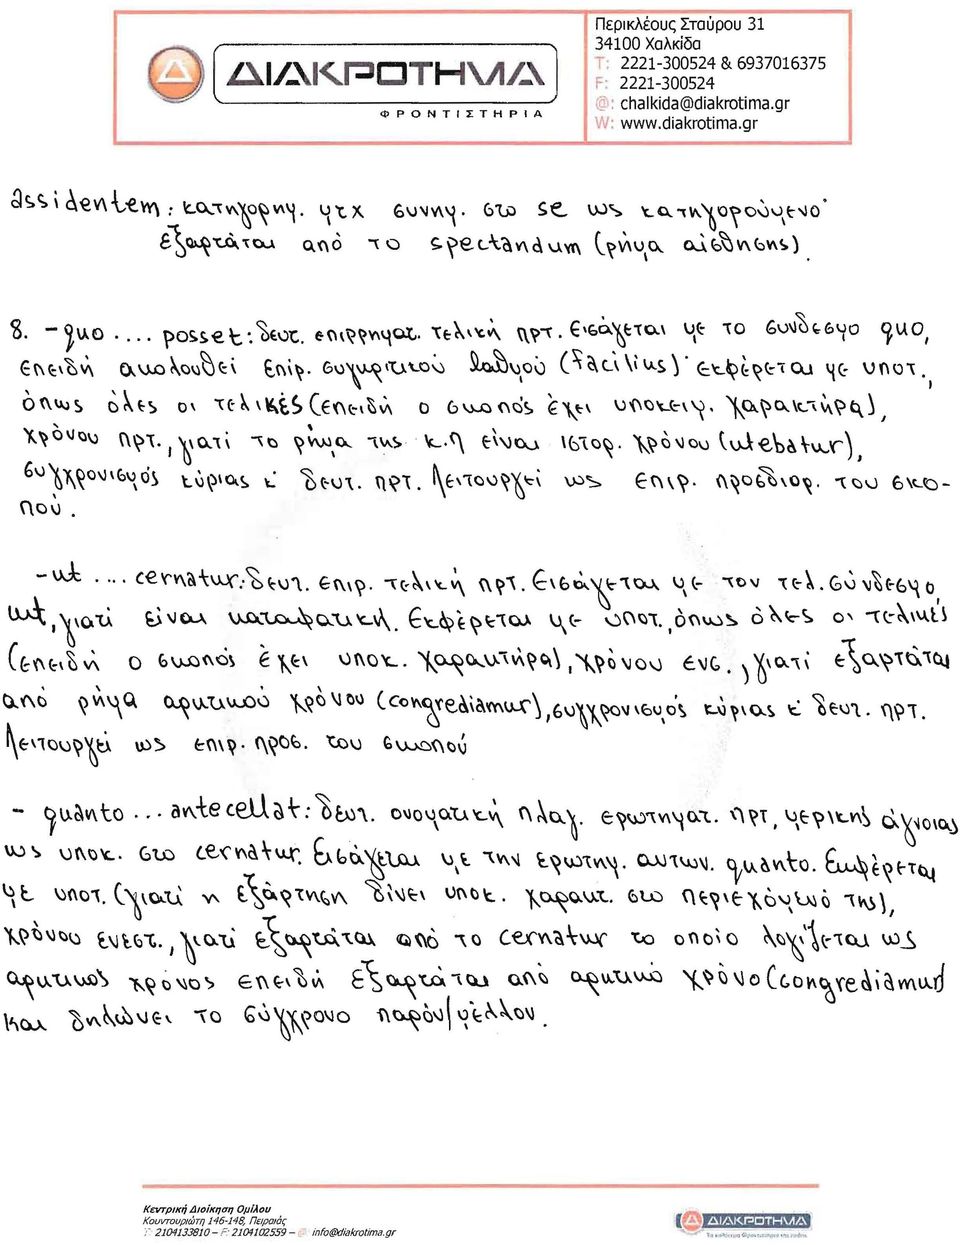 ΔΙΑΚΡΟΤΗΜΑ
ΦΡΟΝΤΙΣΤΗΡΙΑ
Περικλέους Σταύρου 31
34100 Χαλκίδα
T: 2221-300524 & 6937016375
F: 2221-300524
@: chalkida@diakrotima.gr
W: www.diakrotima.gr
assidentem: κατηγορημ. μτχ συνημ. στο se ως κατηγορούμενο·
εξαρτάται από το spectandum (ρήμα αίσθησης).
8. - quo .... posset: δευτ. επιρρηματ. τελική πρτ. Εισάγεται με το σύνδεσμο quo,
επειδή ακολουθεί επίρ. συγκριτικού βαθμού (facilius)· εκφέρεται με υποτ.,
όπως όλες οι τελικές (επειδή ο σκοπός έχει υποκειμ. χαρακτήρα),
χρόνου πρτ., γιατί το ρήμα της κ.η είναι ιστορ. χρόνου (utebatur),
συγχρονισμός κύριας κ' δευτ. πρτ. Λειτουργεί ως επιρ. προσδιορ. του σκο-
πού.
- ut .... cernatur: δευτ. επιρ. τελική πρτ. Εισάγεται με τον τελ. σύνδεσμο
ut, γιατί είναι καταφατική. Εκφέρεται με υποτ., όπως όλες οι τελικές
(επειδή ο σκοπός έχει υποκ. χαρακτήρα), χρόνου ενς., γιατί εξαρτάται
από ρήμα αρκτικού χρόνου (congrediamur), συγχρονισμός κύριας κ' δευτ. πρτ.
Λειτουργεί ως επιρ. προσ. του σκοπού
- quanto ... antecellat: δευτ. ονοματική πλαγ. ερωτηματ. πρτ, μερικής άγνοιας
ως υποκ. στο cernatur. Εισάγεται με την ερωτημ. αντων. quanto. Εκφέρεται
με υποτ. (γιατί η εξάρτηση δίνει υποκ. χαρακτ. στο περιεχόμενό της),
χρόνου ενεστ., γιατί εξαρτάται από το cernatur το οποίο λογίζεται ως
αρκτικός χρόνος επειδή εξαρτάται από αρκτικό χρόνο (congrediamur)
και δηλώνει το σύγχρονο παρόν/μέλλον.
Κεντρική Διοίκηση Ομίλου
Κουντουριώτη 146-148, Πειραιάς
T: 2104133810 – F: 2104102559 – @: info@diakrotima.gr
ΔΙΑΚΡΟΤΗΜΑ